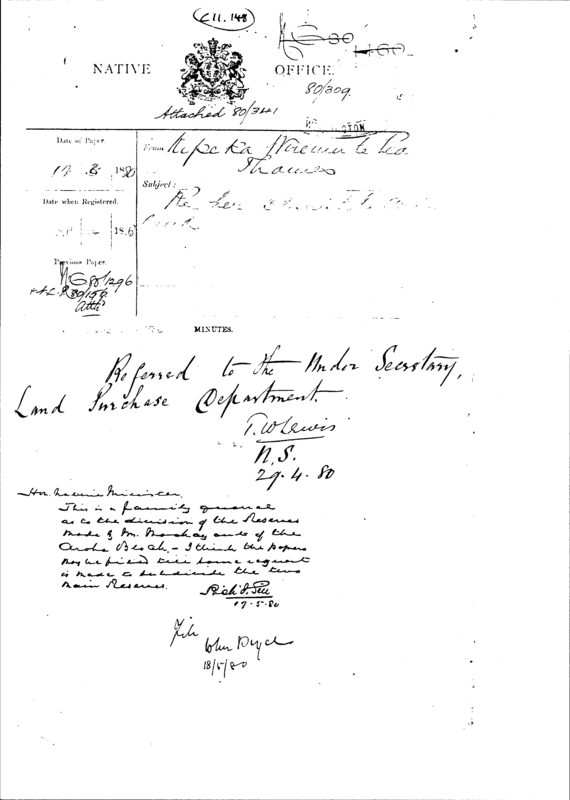 C 11. 148
NG 80
1160
NATIVE OFFICE.
80/309
Attached 80/341
Date of Paper.
From
Thames
17 1880
Subject:
Re her
Date when Registered.
188
land
Previous Paper.
NG 80/1296
80/156
Attd
MINUTES.
Referred to the Under Secretary,
Land Purchase Department.
T. W Lewis
N. S.
29. 4. 80
Hon. Native Minister
This is a family quarrel
as to the division of the Reserves
made by Mr. Mackay out of the
Aroha Block – I think the papers
may be filed till some request
is made to subdivide the two
main Reserves.
17. 5. 80
File
John Bryce
18/5/80